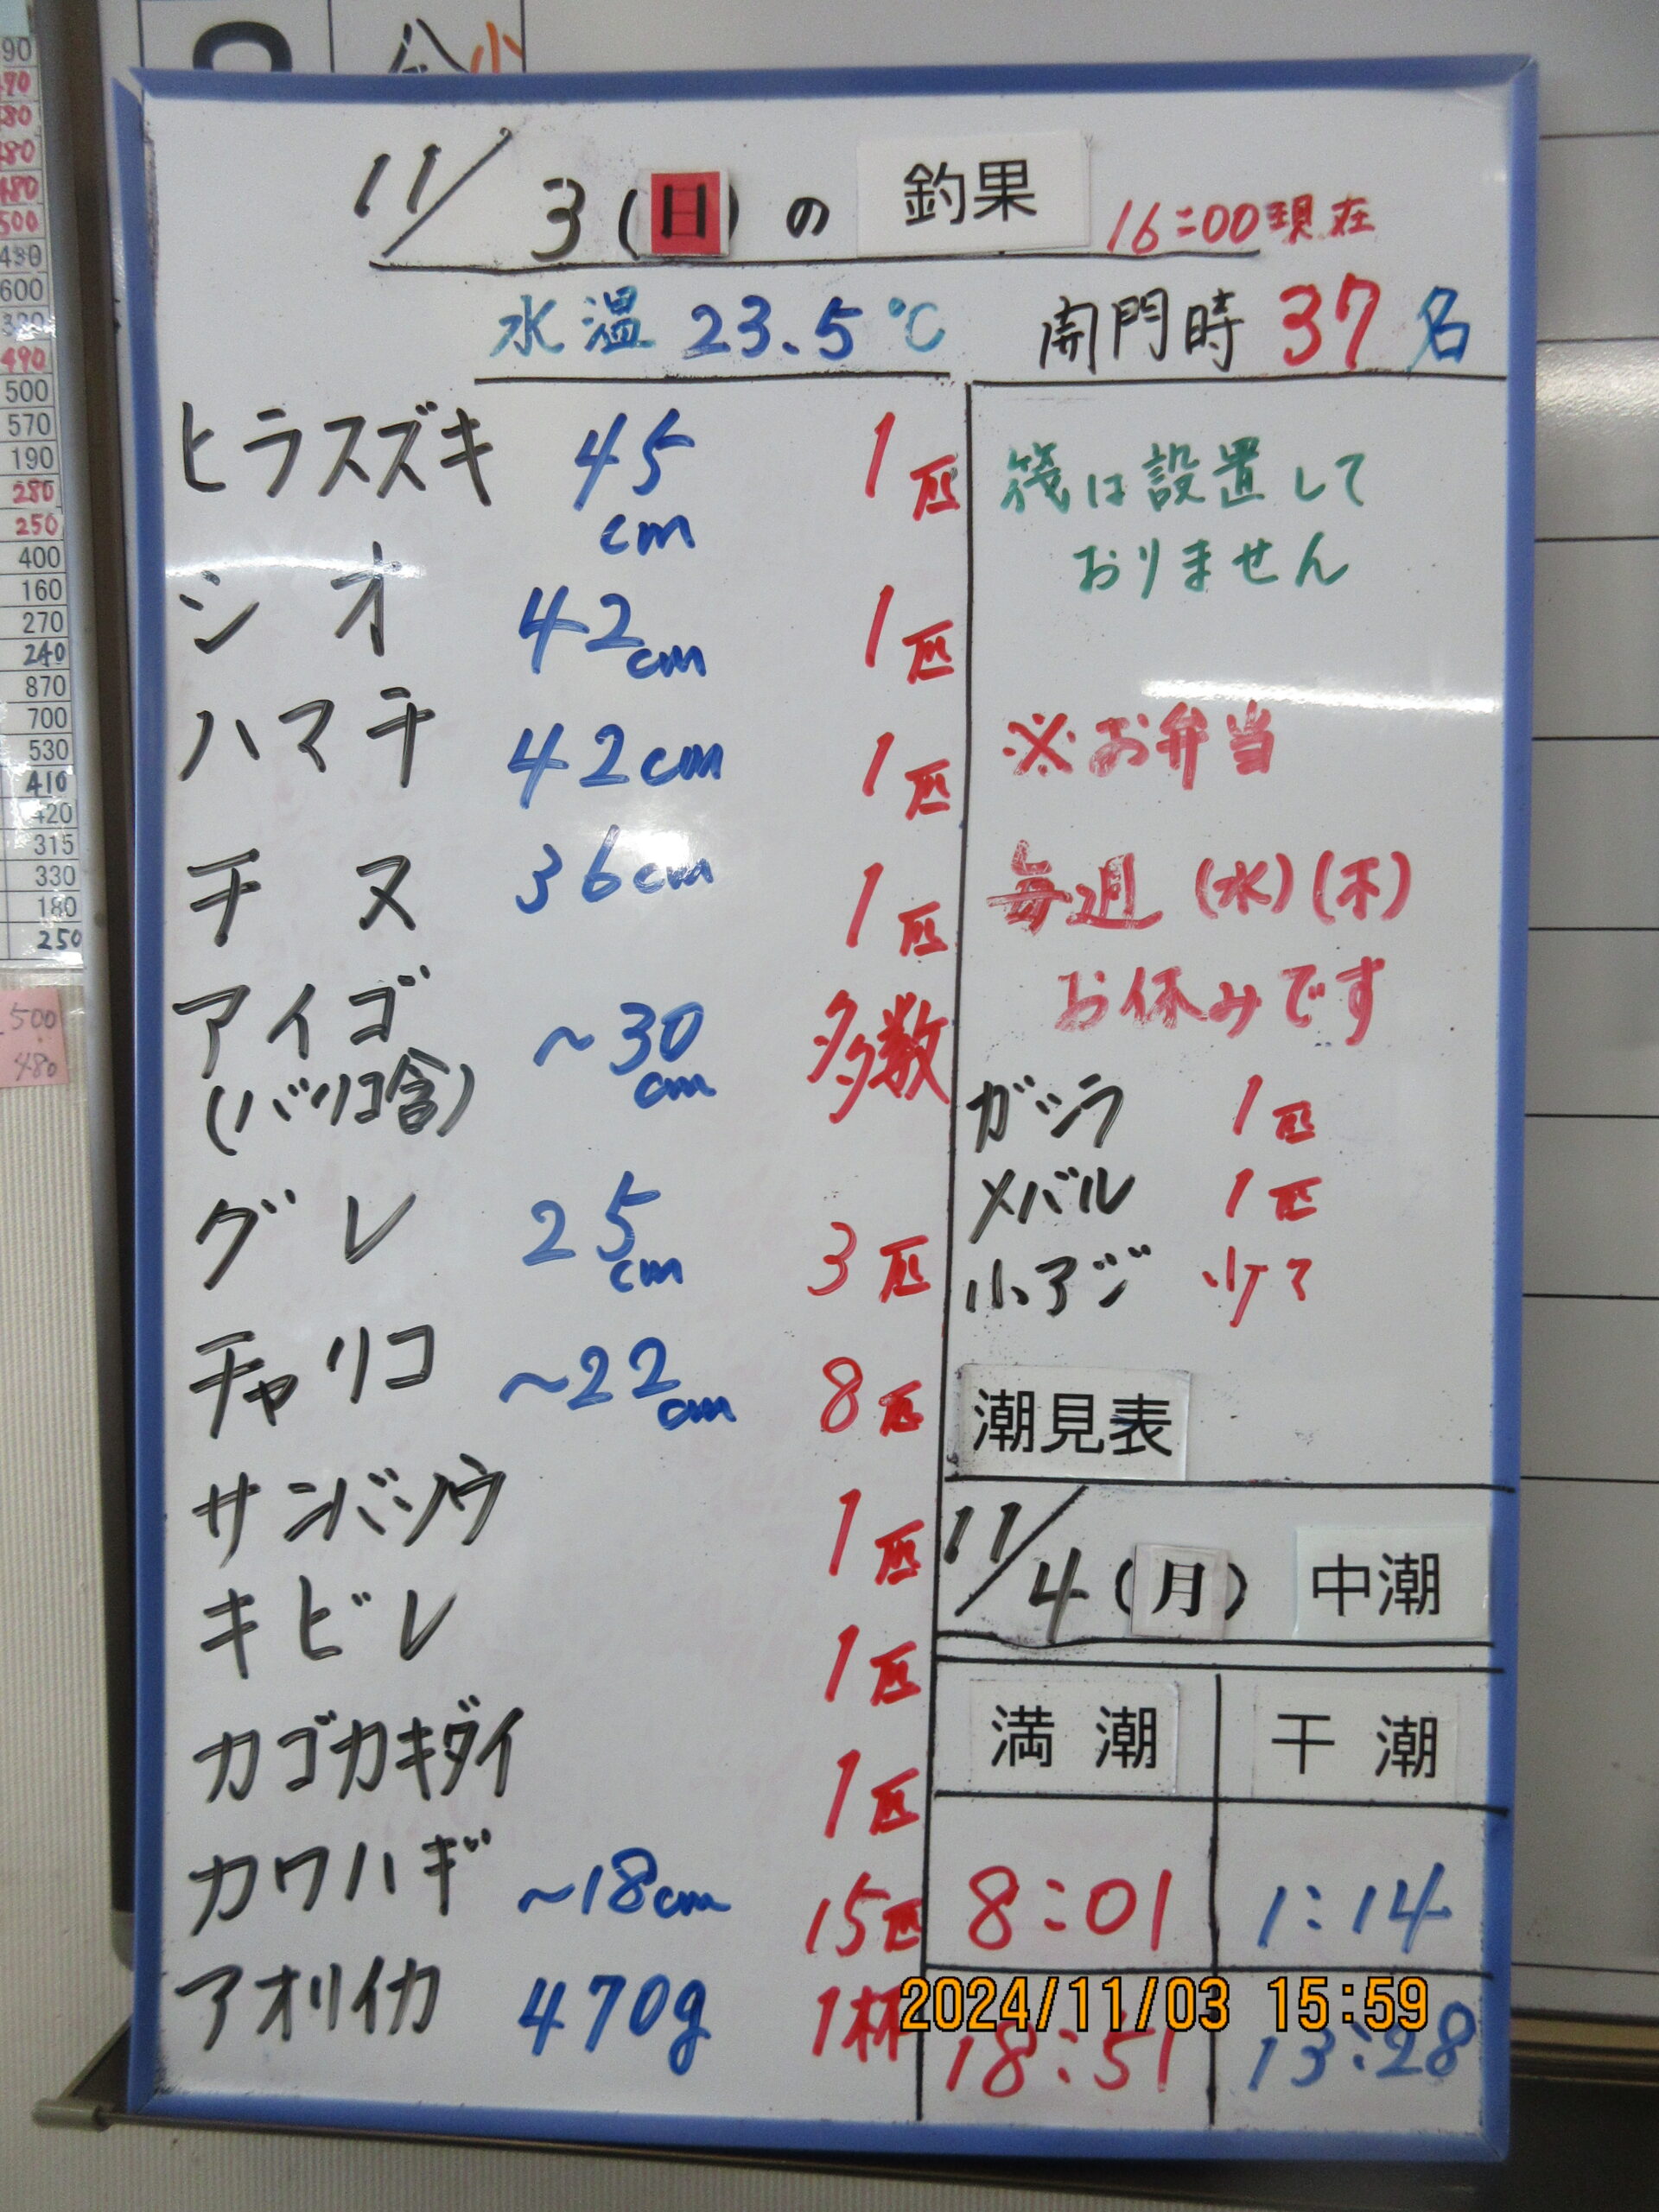 11/3(日)の釣果 16:00現在
水温 23.5℃ 開門時 37名
ヒラスズキ 45cm 1匹
シオ 42cm 1匹
ハマチ 42cm 1匹
チヌ 36cm 1匹
アイゴ ~30cm 多数
(バリコ含)
グレ 25cm 3匹
チャリコ ~22cm 8匹
サンバソウ 1匹
キビレ 1匹
カゴカキダイ 1匹
カワハギ ~18cm 15匹
アオリイカ 470g 1杯
筏は設置して
おりません
※お弁当
毎週(水)(木)
お休みです
ガシラ 1匹
メバル 1匹
小アジ 少々
潮見表
11/4(月) 中潮
満潮 干潮
8:01 1:14
18:51 13:28
2024/11/03 15:59
90
470
480
480
480
500
430
600
320
490
500
570
190
280
250
400
160
270
240
870
700
530
410
420
315
330
180
250
500
480